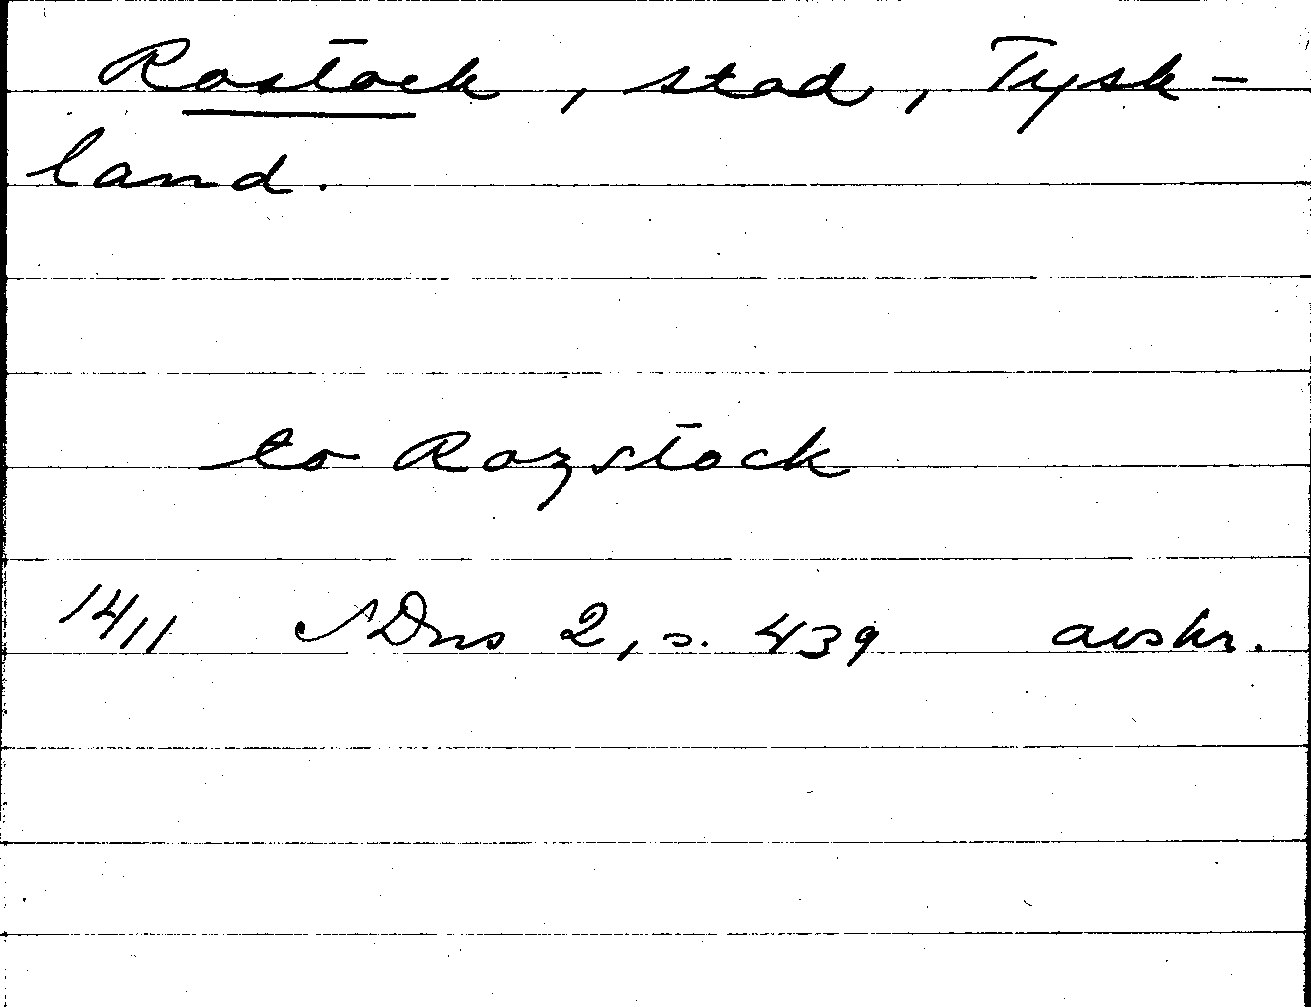 Rostock, stad, Tysk-
land.
to Rozstock
1411 SDns 2, s. 439 avskr.